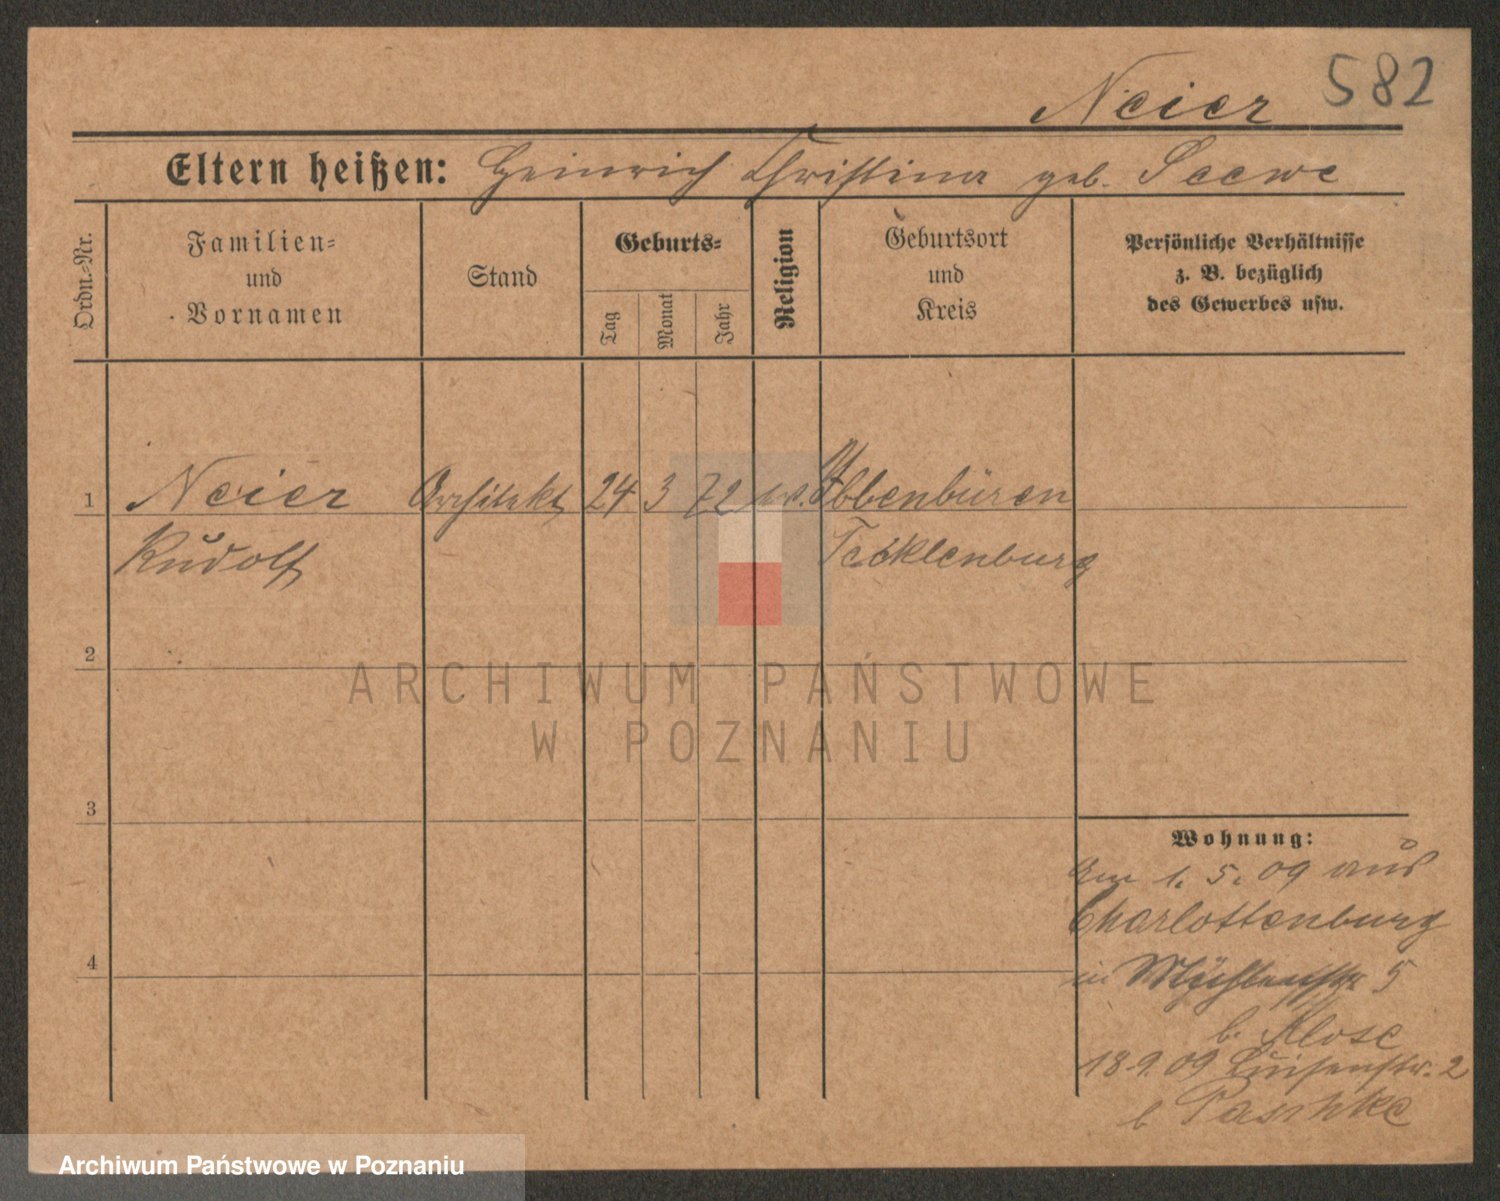 582
Neier
Eltern heißen: Heinrich Christina geb. Seewe
Ordn.-Nr.
Familien-
und
Vornamen
Stand
Geburts-
Tag
Monat
Jahr
Religion
Geburtsort
und
Kreis
Persönliche Verhältnisse
z. B. bezüglich
des Gewerbes usw.
1 Neier Architekt 24 3 72 Ibbenbüren
Rudolf Tecklenburg
2
ARCHIWUM PAŃSTWOWE
W POZNANIU
3
Wohnung:
Am 1. 5. 09 aus
Charlottenburg
4
in Mühlenstr 5
b. Klose
18.9.09 Luisenstr. 2
b Paschke
Archiwum Państwowe w Poznaniu